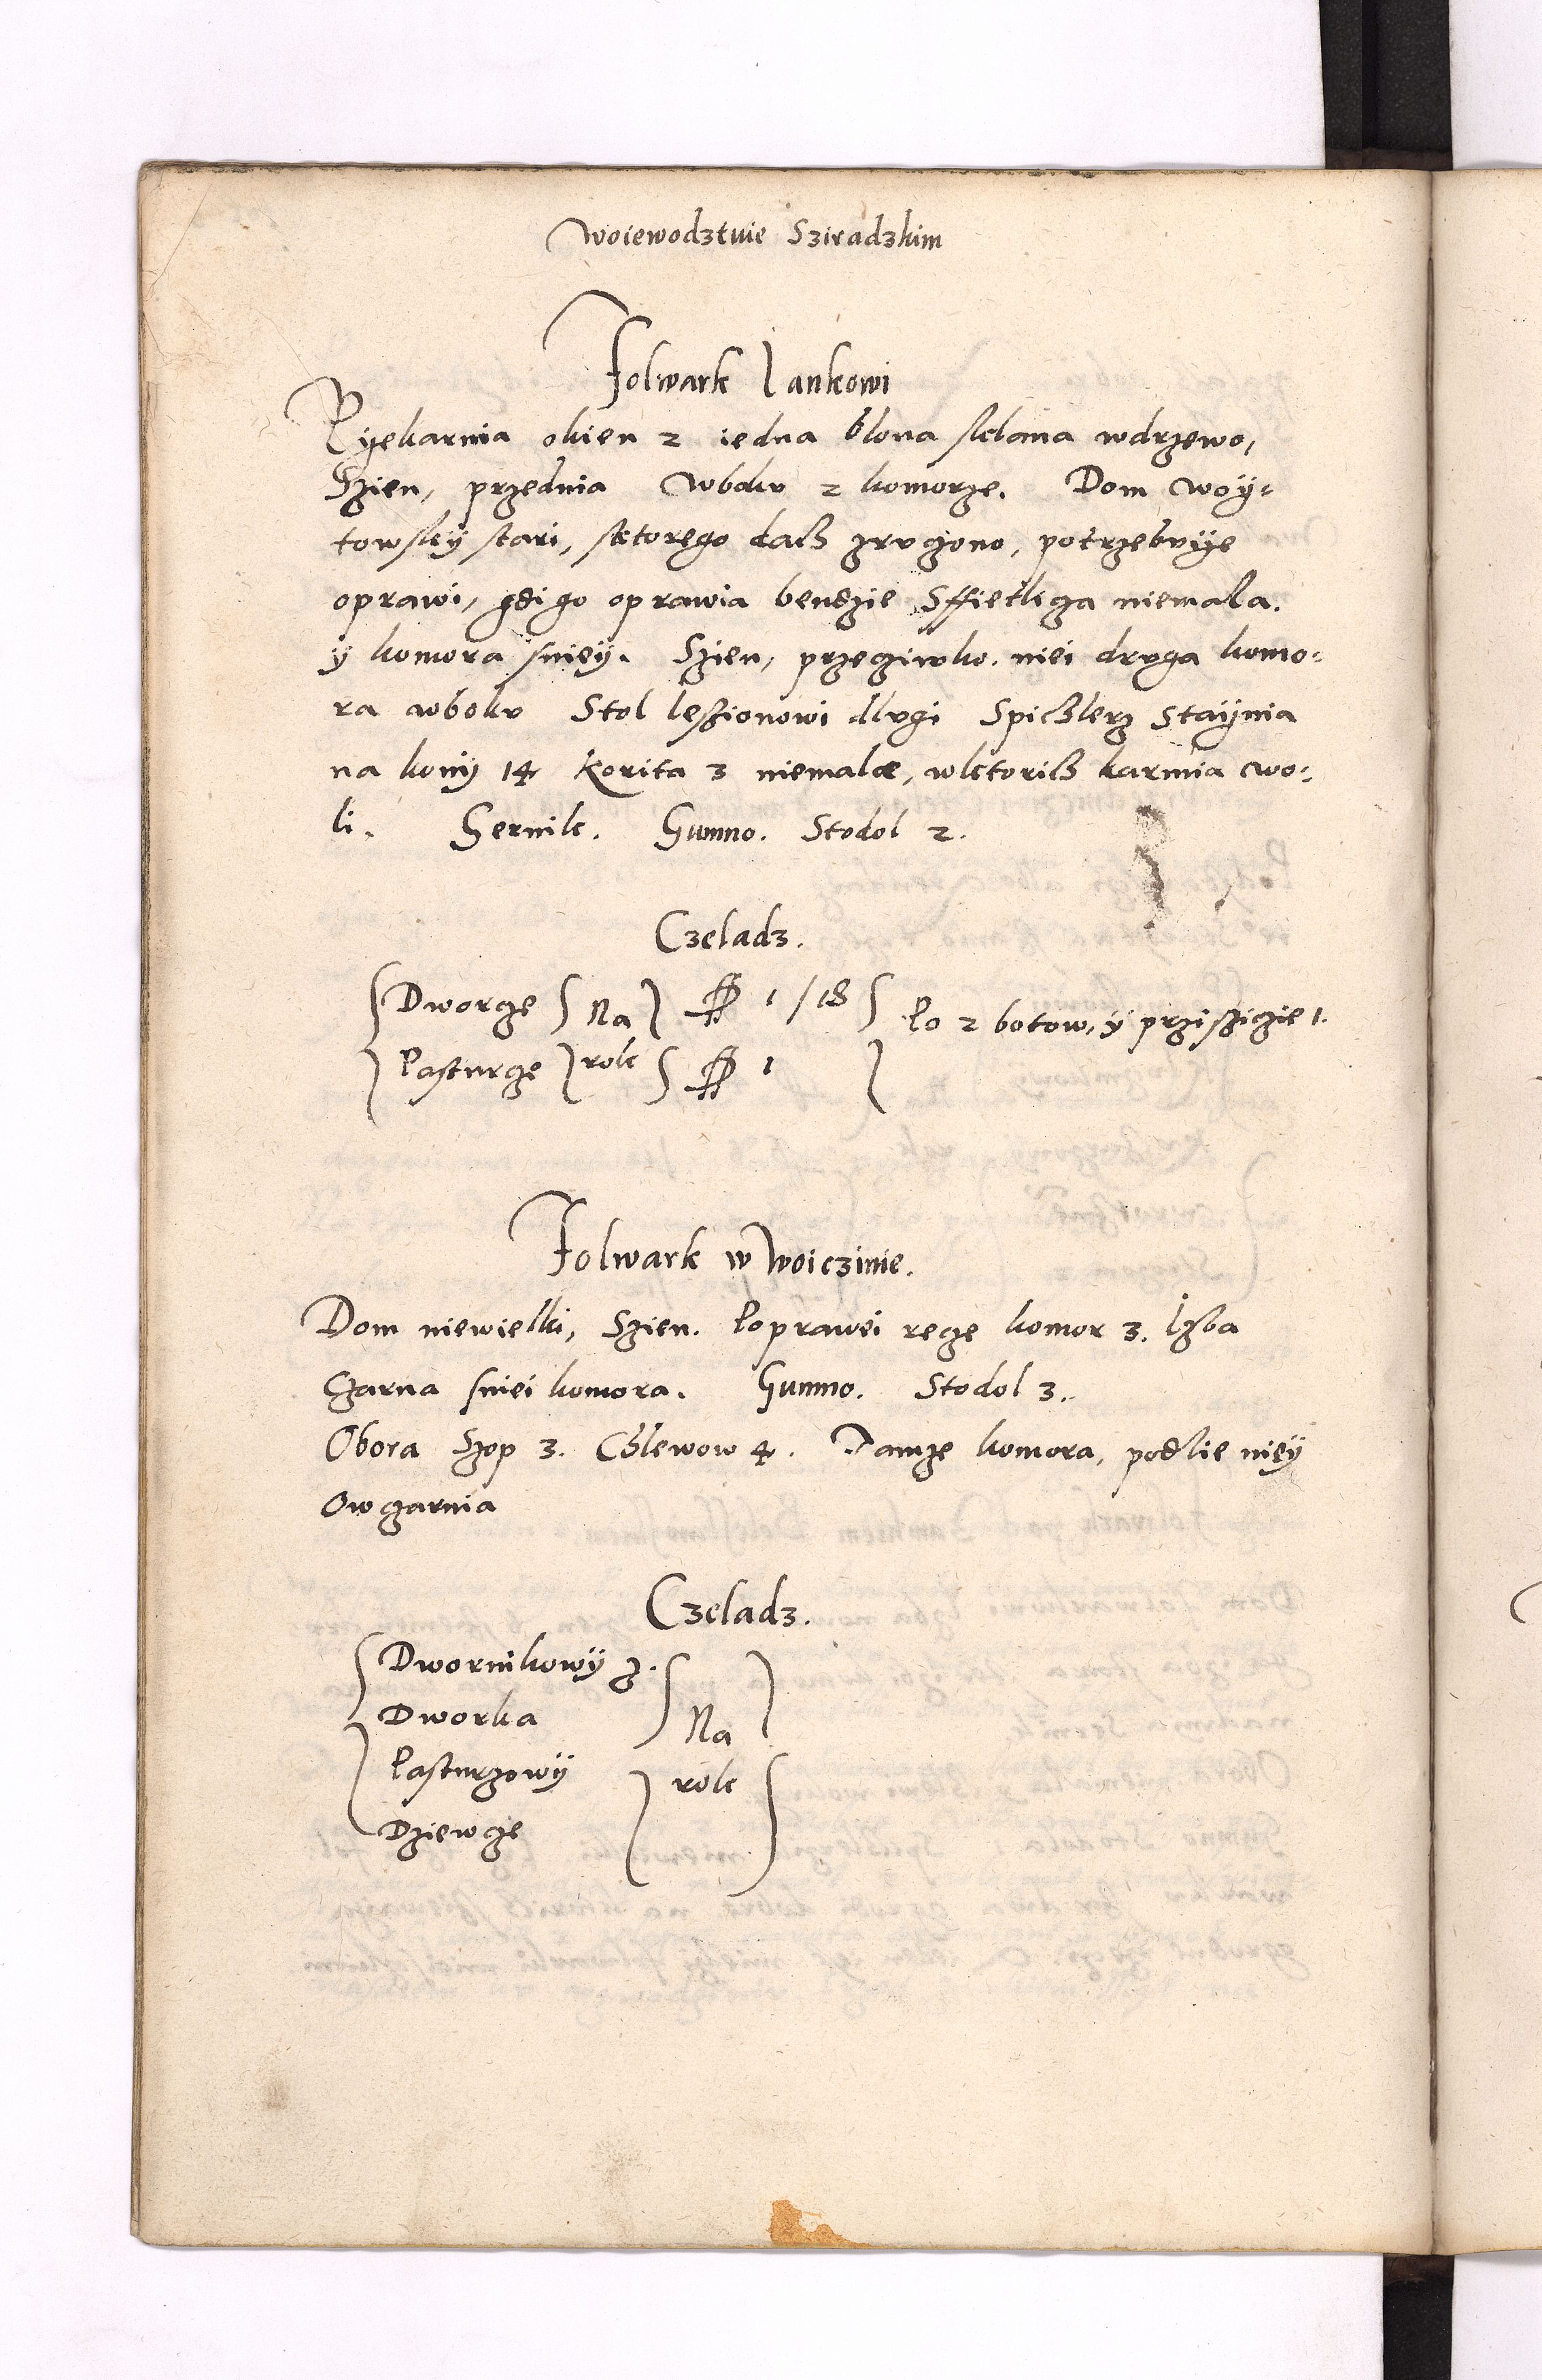 Woiewodztwie Sziradzkim
Folwark Jankowi
Pyekarnia okien 2 iedna blona sklana wdrzewo,
Szien, przednia wboku 2 komorze. Dom woy-
towsky stari, sktorego dach zruczono, potrzebuye
oprawi, gdi go oprawia bendzie Sffietlicza niemala.
y komora sniey. Szien, przeciwko niei druga komo-
ra wboku Stol lessionowi dlugi Spichlerz Staynia
na kony 14 Korita 3 niemale, wktorich karmia wo-
li. Sernik. Gumno. Stodol 2.
Czeladz.
Dworcze Na ℔ 1/18 Po 2 botow, y przisczie 1.
Pasturze rok ℔ 1
Folwark w Woiczinie.
Dom niewielki, Szien. Poprawei rece komor 3. Izba
Czarna sniei komora. Gumno. Stodol 3.
Obora Szop 3. Chlewow 4. Tamze komora, podlie niey
Owczarnia
Czeladz.
Dwornikowy 3.
Dworka Na
Pasturzowy rok
Dziewcze